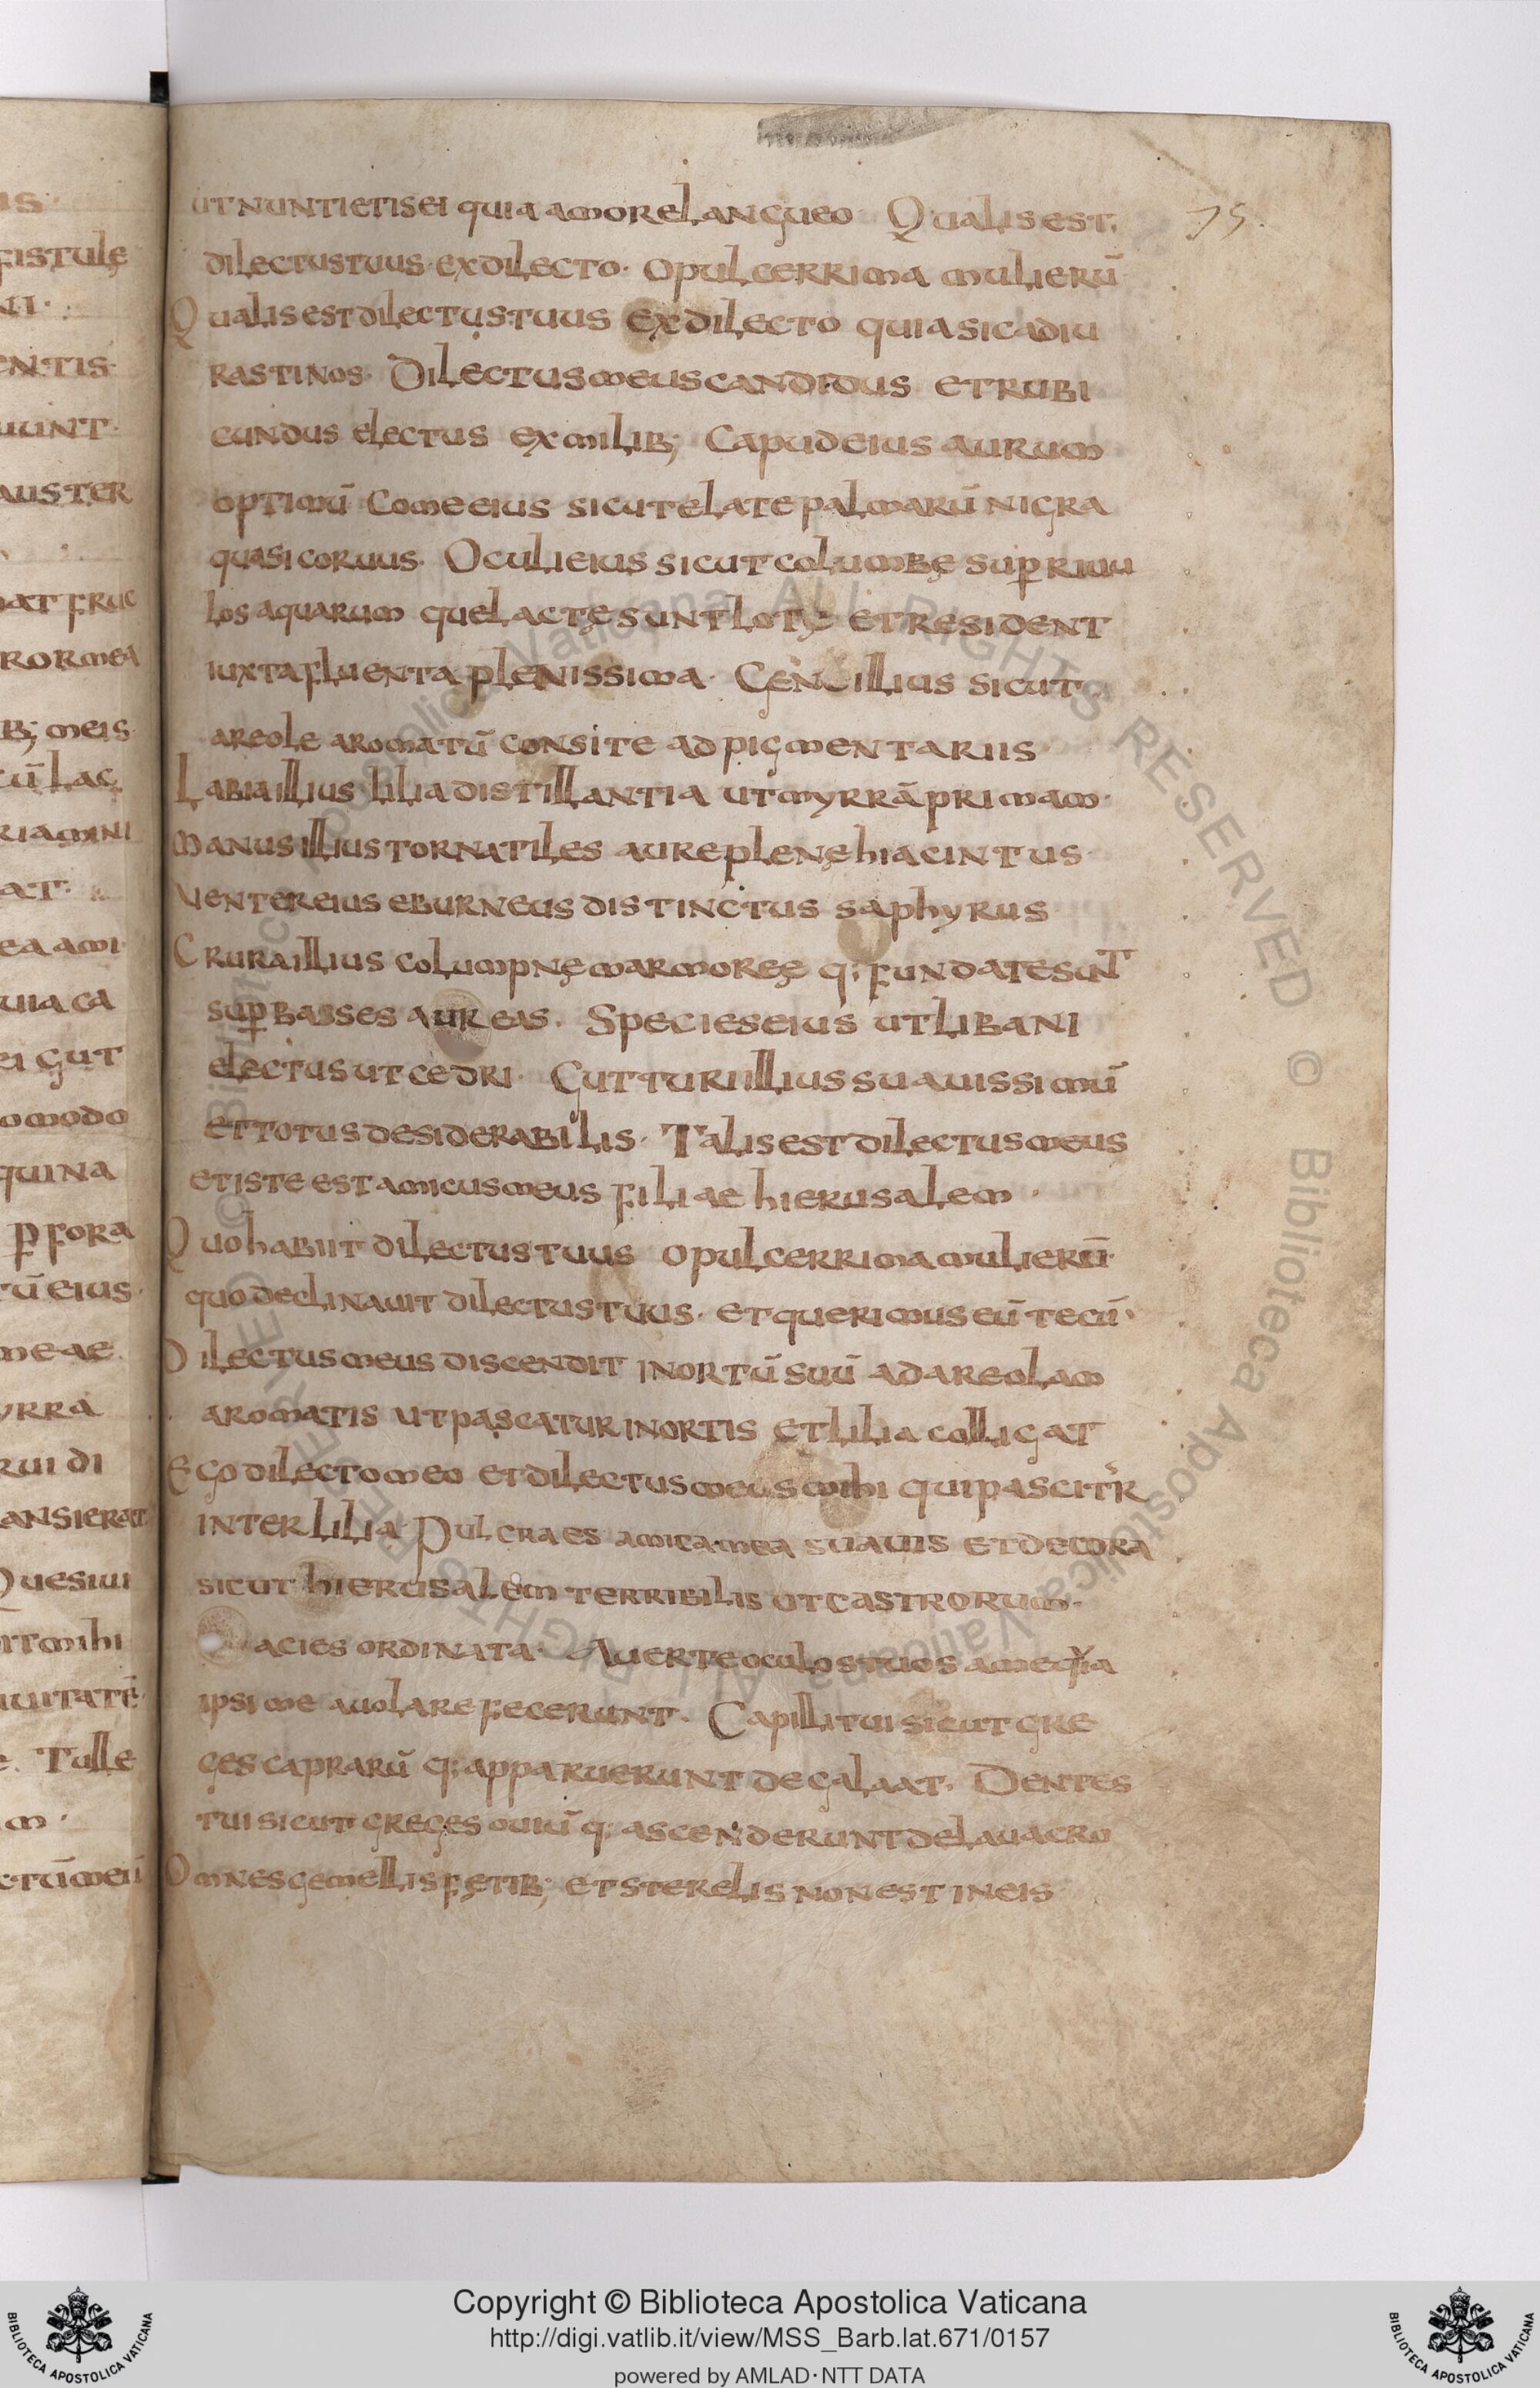 75.
ut nuntietis ei quia amore langueo Qualis est
dilectus tuus · ex dilecto · o pulcerrima mulierū
Qualis est dilectus tuus ex dilecto quia sic adiu
rasti nos · Dilectus meus candidus et rubi
cundus electus ex milib; Capud eius aurum
optimū Come eius sicut elate palmarū nigra
quasi coruus · Oculi eius sicut columbę suꝑ riuu
los aquarum que lactę sunt lotę et resident
iuxta fluenta plenissima · illius sicut
areole aromatū consite ad pigmentariis
Labia illius lilia distillantia ut myrrā primam ·
Manus illius tornatiles aure plenę hiacintus ·
Uenter eius eburneus distinctus saphyrus
Crura illius columpnę marmoreę q; fundate sunt
suꝑ basses aureas . Species eius ut libani
electus ut cedri · Guttur illius suauissimū
et totus desiderabilis · Talis est dilectus meus
et iste est amicus meus filiae hierusalem ·
Quo habiit dilectus tuus o pulcerrima mulierū ·
quo declinauit dilectus tuus · et querimus eū tecū ·
Dilectus meus discendit in ortū suū ad areolam
aromatis ut pascatur in ortis et lilia colligat
Ego dilecto meo et dilectus meus mihi qui pascitr
inter lilia Pulcra es amica mea suauis et decora
sicut hierusalem terribilis ut castrorum ·
acies ordinata · Auerte oculos tuos a me qia
ipsi me auolare fecerunt . Capilli tui sicut gre
ges caprarū q; apparuerunt de galaat . Dentes
tui sicut greges ouiū q; ascenderunt de lauacro
Omnes gemellis fętib; et sterelis non est in eis
is ·
fistulę
ni ·
entis ·
uunt ·
auster
at fruc
ror mea
b; meis
cū lac
riamini
at ·
ea ami
uia ca
ei gut
omodo
qui na
ꝑ fora
tū eius ·
meae
yrra
rui di
ansierat
Quesiui
it mihi
iuitatē ·
e . Tulle
m ·
ctū meū
Copyright © Biblioteca Apostolica Vaticana
http://digi.vatlib.it/view/MSS_Barb.lat.671/0157
powered by AMLAD·NTT DATA
BIBLIOTECA APOSTOLICA VATICANA
BIBLIOTECA APOSTOLICA VATICANA
© Biblioteca Apostolica Vaticana ALL RIGHTS RESERVED